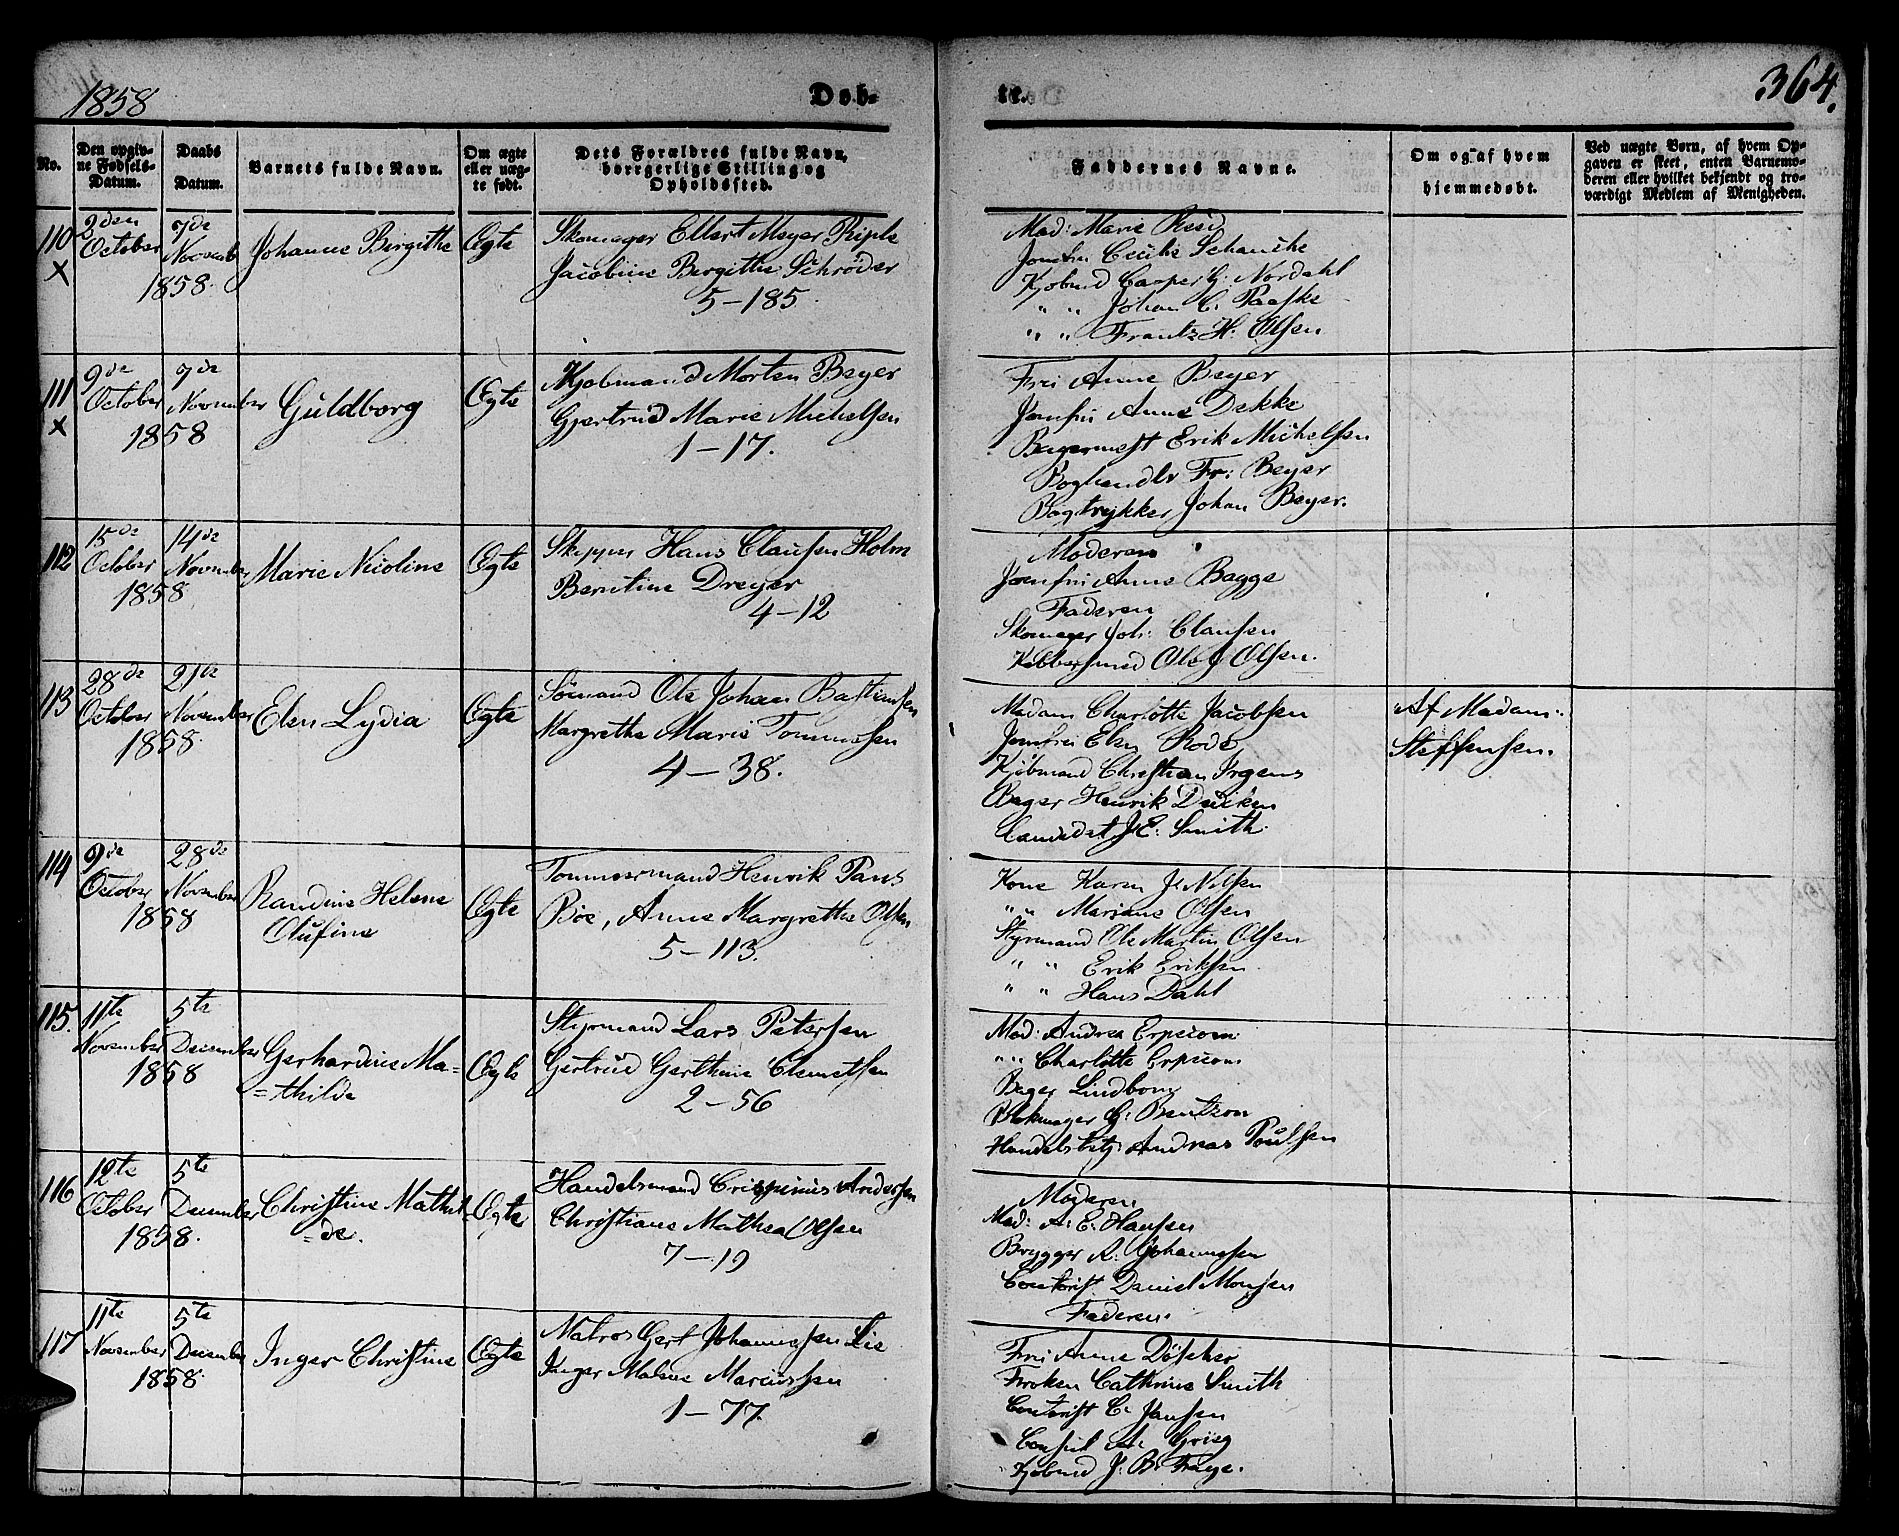 1858
Døb-
te.
364.
No.
Den opgiv-
ne Fødsels-
Datum.
Daabs
Datum.
Barnets fulde Navn.
Om ægte
eller uæg-
te født.
Dets Forældres fulde Navn,
borgerlige Stilling og
Opholdssted.
Faddernes Navne.
Om og af hvem
hjemmedøbt.
Ved uægte Børn, af hvem Op-
gaven er skeet, enten Barnemo-
deren eller hvilket bekjendt og tro-
værdigt Medlem af Menigheden.
110
X
2den
October
7de
Novemb
1858.
Johanne Birgithe
Ægte
Skomager Ellert Meyer Riple
Jacobine Birgithe Schrøder
5-185.
Mad: Marie
Jomfru Cecilie Schanche
Kjøbmd Casper G: Nordahl
" " Johan C. Paaske
" " Frantz H: Olsen
111
X
9de
October
7de
November
1858
Guldborg
Ægte
Kjøbmand Morten Beyer
Gjertrud Marie Michelsen
1-17.
Fru Anne Beyer
Jomfru Anne Dekke
Bagermest Erik Michelsen
Boghandler Fr: Beyer
Bogtrykker Johan Beyer.
112
15de
October
14de
November
1858
Marie Nicoline
Ægte
Skipper Hans Clausen Holm
Berntine Dreyer
4-12
Moderen
Jomfru Anne Bagge
Faderen
Skomager Joh: Clausen
Kobbersmed Ole J Olsen.
113
28de
October
21de
November
1858.
Elen Lydia
Ægte
Sømand Ole Johan Bastiansen
Margrethe Marie Tommesen
4-38.
Madam Charlotte Jacobsen
Jomfru Elen Rode
Kjøbmand Christian Irgens
Bager Henrik Ducken
Candidat J E. Smith.
Af Madam
Steffensen.
114
9de
October
28de
November
1858
Randine Helene
Olufine
Ægte
Tømmermand Henrik Paus
Bøe, Anne Margrethe Olsen
5-113.
Kone Karen J: Nilsen
" " Mariane Olsen
Styrmand Ole Martin Olsen
" " Erik Eriksen
" " Hans Dahl
115.
11te
November
5te
December
1858
Gerhardine Ma=
=thilde
Ægte
Styrmand Lars Petersen
Gertrud Gerthine Clemetsen
2-56
Mad: Andrea Erpecom
" " Charlotte Erpecom
Bager Lindborg
Blokmager G: Bentzon
Handelsbetj: Andreas Poulsen
116
12te
October
5te
December
1858.
Christine Mathil
=de.
Ægte
Handelsmand Crispinus Andersen
Christiane Mathea Olsen
7-19
Moderen
Mad: A. E. Hansen
Brygger A. Johannesen
Contorist Daniel Monsen
Faderen.
117
11te
November
5te
December
1858.
Inger Christine
Ægte
Matros Gert Johannesen Lie
Inger Malene Marcussen
1-77.
Fru Anne Døscher
Frøken Cathrine Smith
Contorist C. Jansen
Consul A. Grieg
Kjøbmd J. B. Fraye.